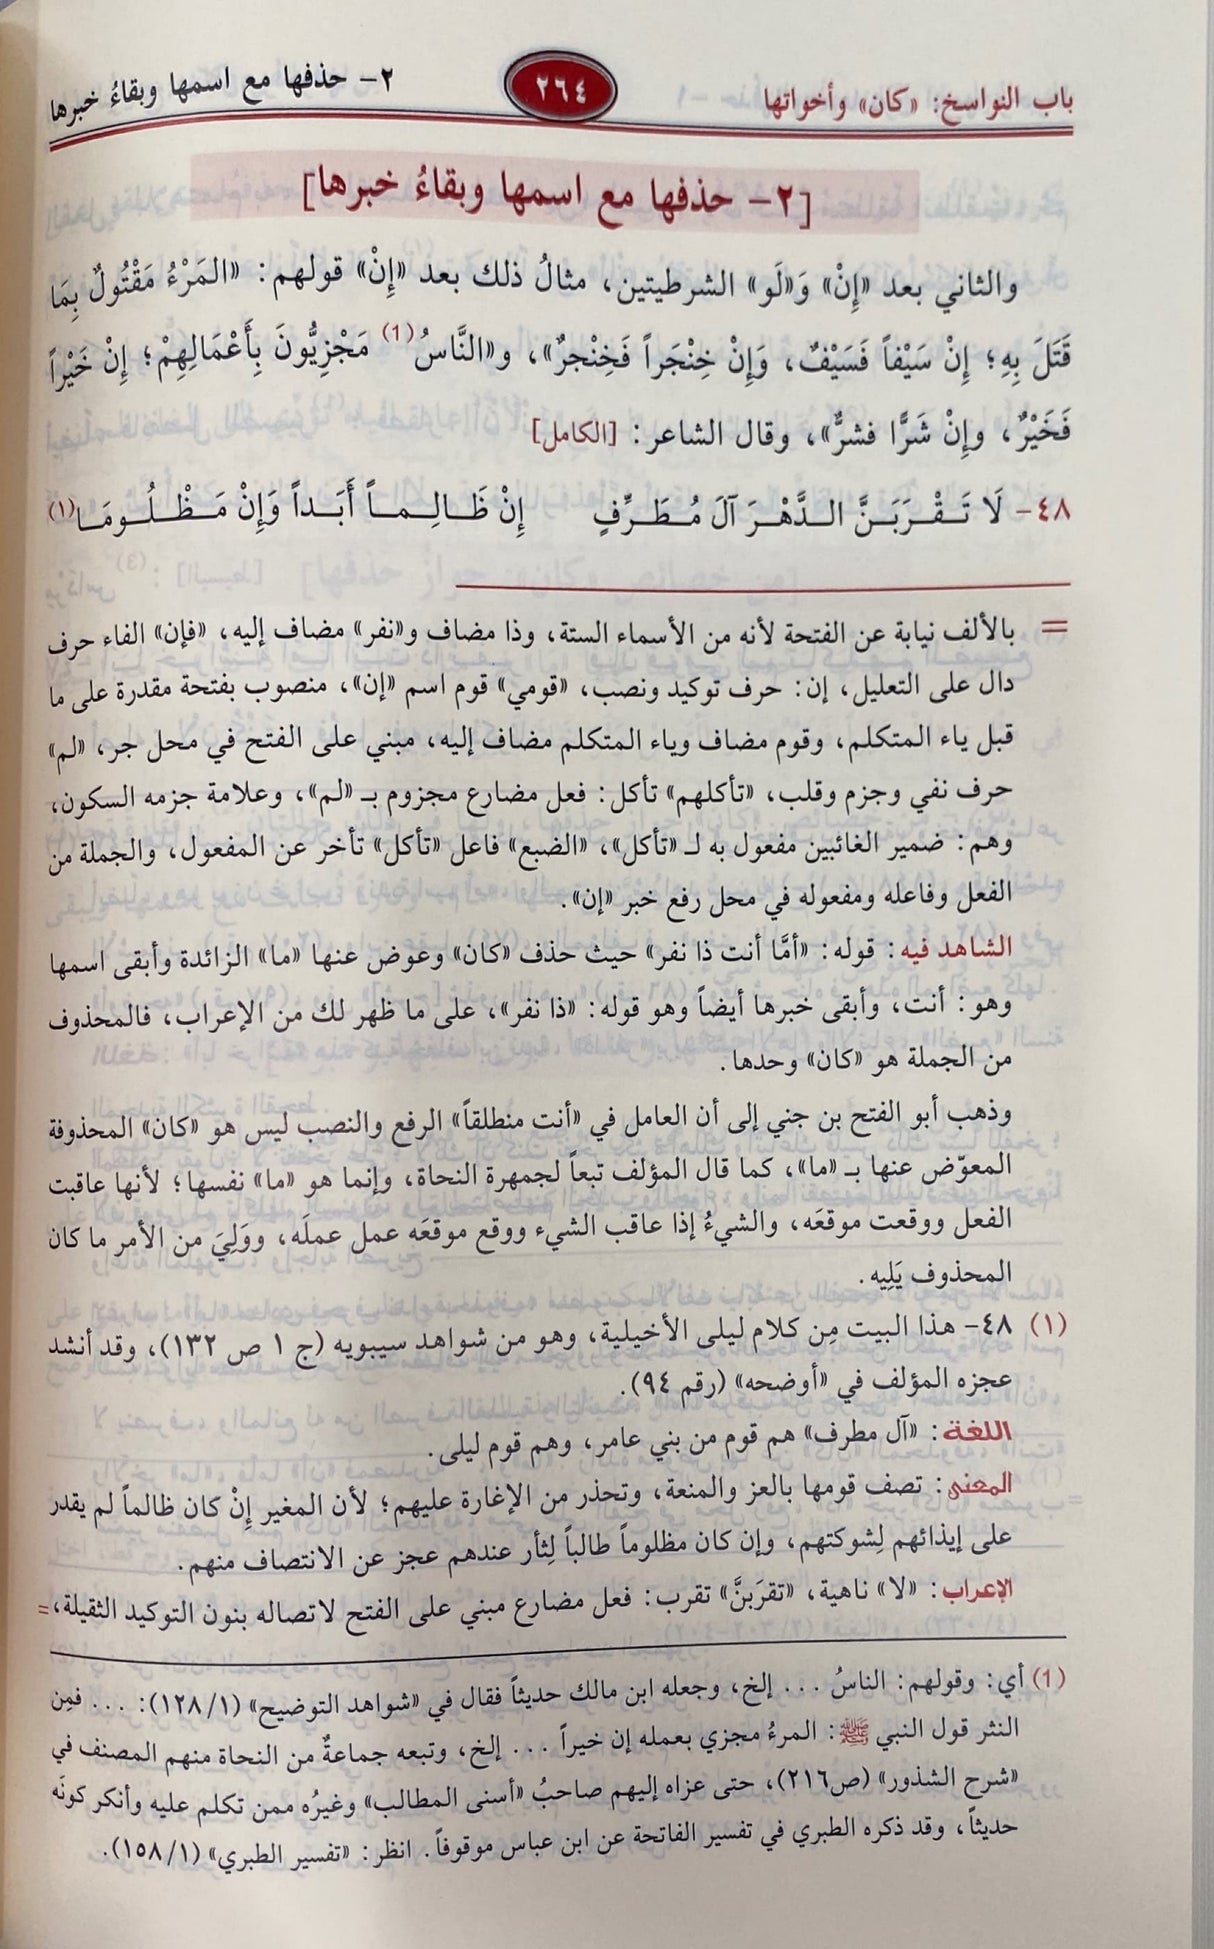 باب النواسخ: «كان» وأخواتها
٢٦٤
٢- حذفها مع اسمها وبقاءُ خبرها
[٢- حذفها مع اسمها وبقاءُ خبرها]
والثاني بعد «إِنْ» وَ«لَو» الشرطيتين، مثالُ ذلك بعد «إِنْ» قولهم: «المَرْءُ مَقْتُولٌ بِمَا
قَتَلَ بِهِ؛ إِنْ سَيْفاً فَسَيْفٌ، وَإِنْ خِنْجَراً فَخِنْجرٌ»، و«النَّاسُ(1) مَجْزِيُّونَ بِأَعْمَالِهِمْ؛ إِنْ خَيْراً
فَخَيْرٌ، وإِنْ شَرًّا فشرٌّ»، وقال الشاعر: [الكامل]
٤٨- لَا تَـقْـرَبَـنَّ الـدَّهْـرَ آلَ مُـطَـرِّفٍ إِنْ ظَـالِـمـاً أَبَـداً وَإِنْ مَـظْـلُـومَـا(١)
= بالألف نيابة عن الفتحة لأنه من الأسماء الستة، وذا مضاف و«نفر» مضاف إليه، «فإن» الفاء حرف
دال على التعليل، إن: حرف توكيد ونصب، «قومي» قوم اسم «إن»، منصوب بفتحة مقدرة على ما
قبل ياء المتكلم، وقوم مضاف وياء المتكلم مضاف إليه، مبني على الفتح في محل جر، «لم»
حرف نفي وجزم وقلب، «تأكلهم» تأكل: فعل مضارع مجزوم بـ «لم»، وعلامة جزمه السكون،
وهم: ضمير الغائبين مفعول به لـ «تأكل»، «الضبع» فاعل «تأكل» تأخر عن المفعول، والجملة من
الفعل وفاعله ومفعوله في محل رفع خبر «إن».
الشاهد فيه: قوله: «أمَّا أنت ذا نفر» حيث حذف «كان» وعوض عنها «ما» الزائدة وأبقى اسمها
وهو: أنت، وأبقى خبرها أيضاً وهو قوله: «ذا نفر»، على ما ظهر لك من الإعراب، فالمحذوف
من الجملة هو «كان» وحدها.
وذهب أبو الفتح بن جني إلى أن العامل في «أنت منطلقاً» الرفع والنصب ليس هو «كان» المحذوفة
المعوّض عنها بـ «ما»، كما قال المؤلف تبعاً لجمهرة النحاة، وإنما هو «ما» نفسها؛ لأنها عاقبت
الفعل ووقعت موقعَه، والشيءُ إذا عاقب الشيء ووقع موقعَه عمل عملَه، ووَلِيَ من الأمر ما كان
المحذوف يَلِيه.
(١) ٤٨- هذا البيت مِن كلام ليلى الأخيلية، وهو من شواهد سيبويه (ج ١ ص ١٣٢)، وقد أنشد
عجزه المؤلف في «أوضحه» (رقم ٩٤).
اللغة: «آل مطرف» هم قوم من بني عامر، وهم قوم ليلى.
المعنى: تصف قومها بالعز والمنعة، وتحذر من الإغارة عليهم؛ لأن المغير إِنْ كان ظالماً لم يقدر
على إيذائهم لِشوكتهم، وإن كان مظلوماً طالباً لِثأر عندهم عجز عن الانتصاف منهم.
الإعراب: «لا» ناهية، «تقرَبنَّ» تقرب: فعل مضارع مبني على الفتح لاتصاله بنون التوكيد الثقيلة، =
(1) أي: وقولهم: الناسُ ... إلخ، وجعله ابن مالك حديثاً فقال في «شواهد التوضيح» (١٢٨/١): ... فمِن
النثر قول النبي ﷺ: المرءُ مجزي بعمله إن خيراً ... إلخ، وتبعه جماعةٌ من النحاة منهم المصنف في
«شرح الشذور» (ص٢١٦)، حتى عزاه إليهم صاحبُ «أسنى المطالب» وغيرُه ممن تكلم عليه وأنكر كونَه
حديثاً، وقد ذكره الطبري في تفسير الفاتحة عن ابن عباس موقوفاً. انظر: «تفسير الطبري» (١٥٨/١).